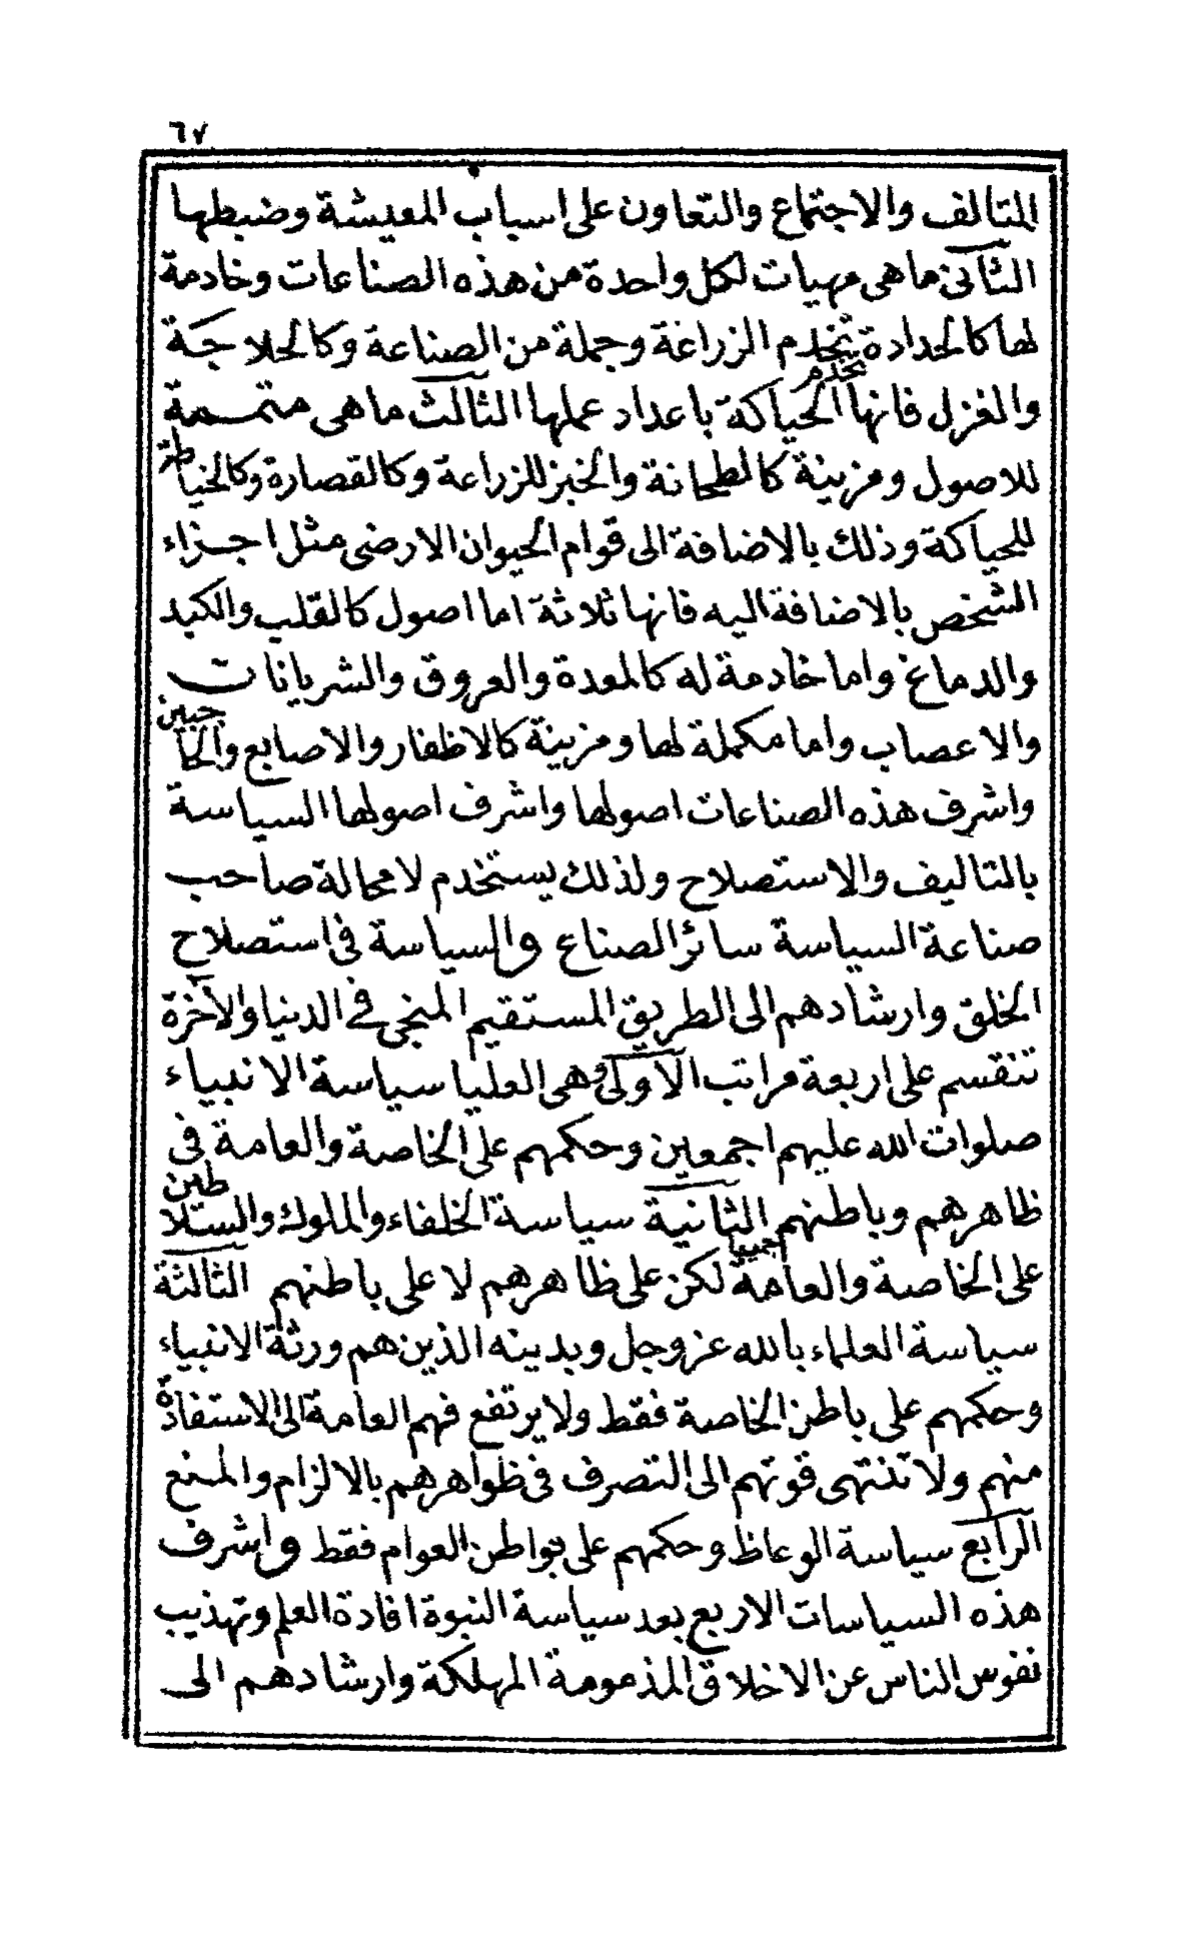 ٦٧
المتالف والاجتماع والتعاون على اسباب المعيشة وضبطها
الثانى ما هى مهيات لكل واحدة من هذه الصناعات وخادمة
لها كالحدادة تخدم الزراعة وجملة من الصناعة وكالحلاجة
والغزل فانها تخدم الحياكة باعداد عملها الثالث ما هى متممة
للاصول ومزينة كالطحانة والخبز للزراعة وكالقصارة وكالخياطة
للحياكة وذلك بالاضافة الى قوام الحيوان الارضى مثل اجزاء
الشخص بالاضافة اليه فانها ثلاثة اما اصول كالقلب والكبد
والدماغ واما خادمة له كالمعدة والعروق والشريانات
والاعصاب واما مكملة لها ومزينة كالاظفار والاصابع والحاجبين
واشرف هذه الصناعات اصولها واشرف اصولها السياسة
بالتاليف والاستصلاح ولذلك يستخدم لا محالة صاحب
صناعة السياسة سائر الصناع والسياسة فى استصلاح
الخلق وارشادهم الى الطريق المستقيم المنجى فى الدنيا والآخرة
تنقسم على اربعة مراتب الاولى وهى العليا سياسة الانبياء
صلوات الله عليهم اجمعين وحكمهم على الخاصة والعامة فى
ظاهرهم وباطنهم الثانية سياسة الخلفاء والملوك والسلاطين
على الخاصة والعامة جميعا لكن على ظاهرهم لا على باطنهم الثالثة
سياسة العلماء بالله عز وجل وبدينه الذين هم ورثة الانبياء
وحكمهم على باطن الخاصة فقط ولا يرتفع فهم العامة الى الاستفادة
منهم ولا تنتهى قوتهم الى التصرف فى ظواهرهم بالالزام والمنع
الرابع سياسة الوعاظ وحكمهم على بواطن العوام فقط واشرف
هذه السياسات الاربع بعد سياسة النبوة افادة العلم وتهذيب
نفوس الناس عن الاخلاق المذمومة المهلكة وارشادهم الى